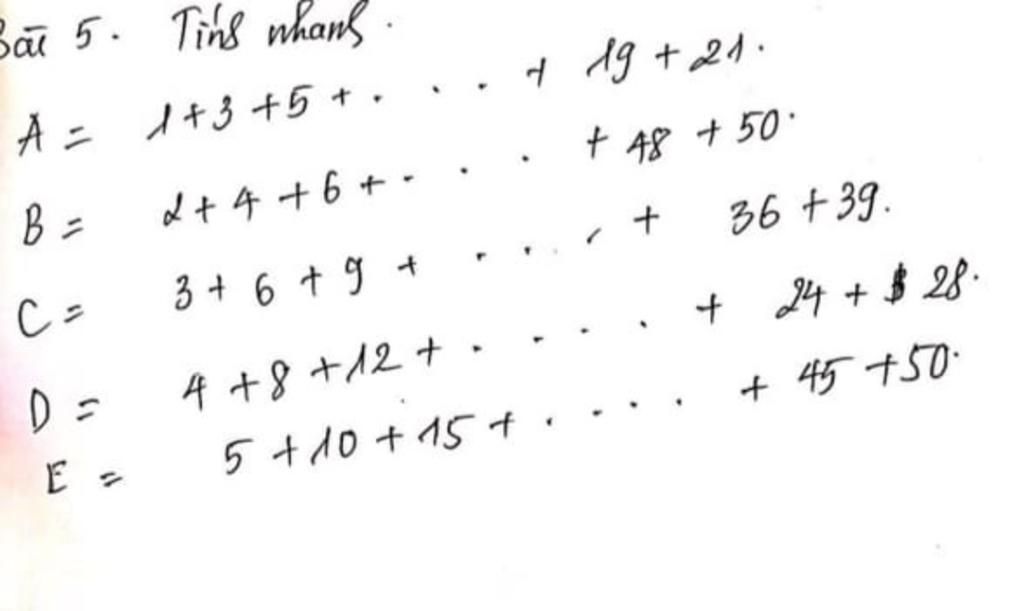 Bài 5. Tính nhanh.
A = 1+3+5+. . . . + 19+21.
B = 2+4+6+. . . . + 48+50.
C = 3+6+9+ . . . . + 36+39.
D = 4+8+12+. . . . + 24+28.
E = 5+10+15+. . . . + 45+50.